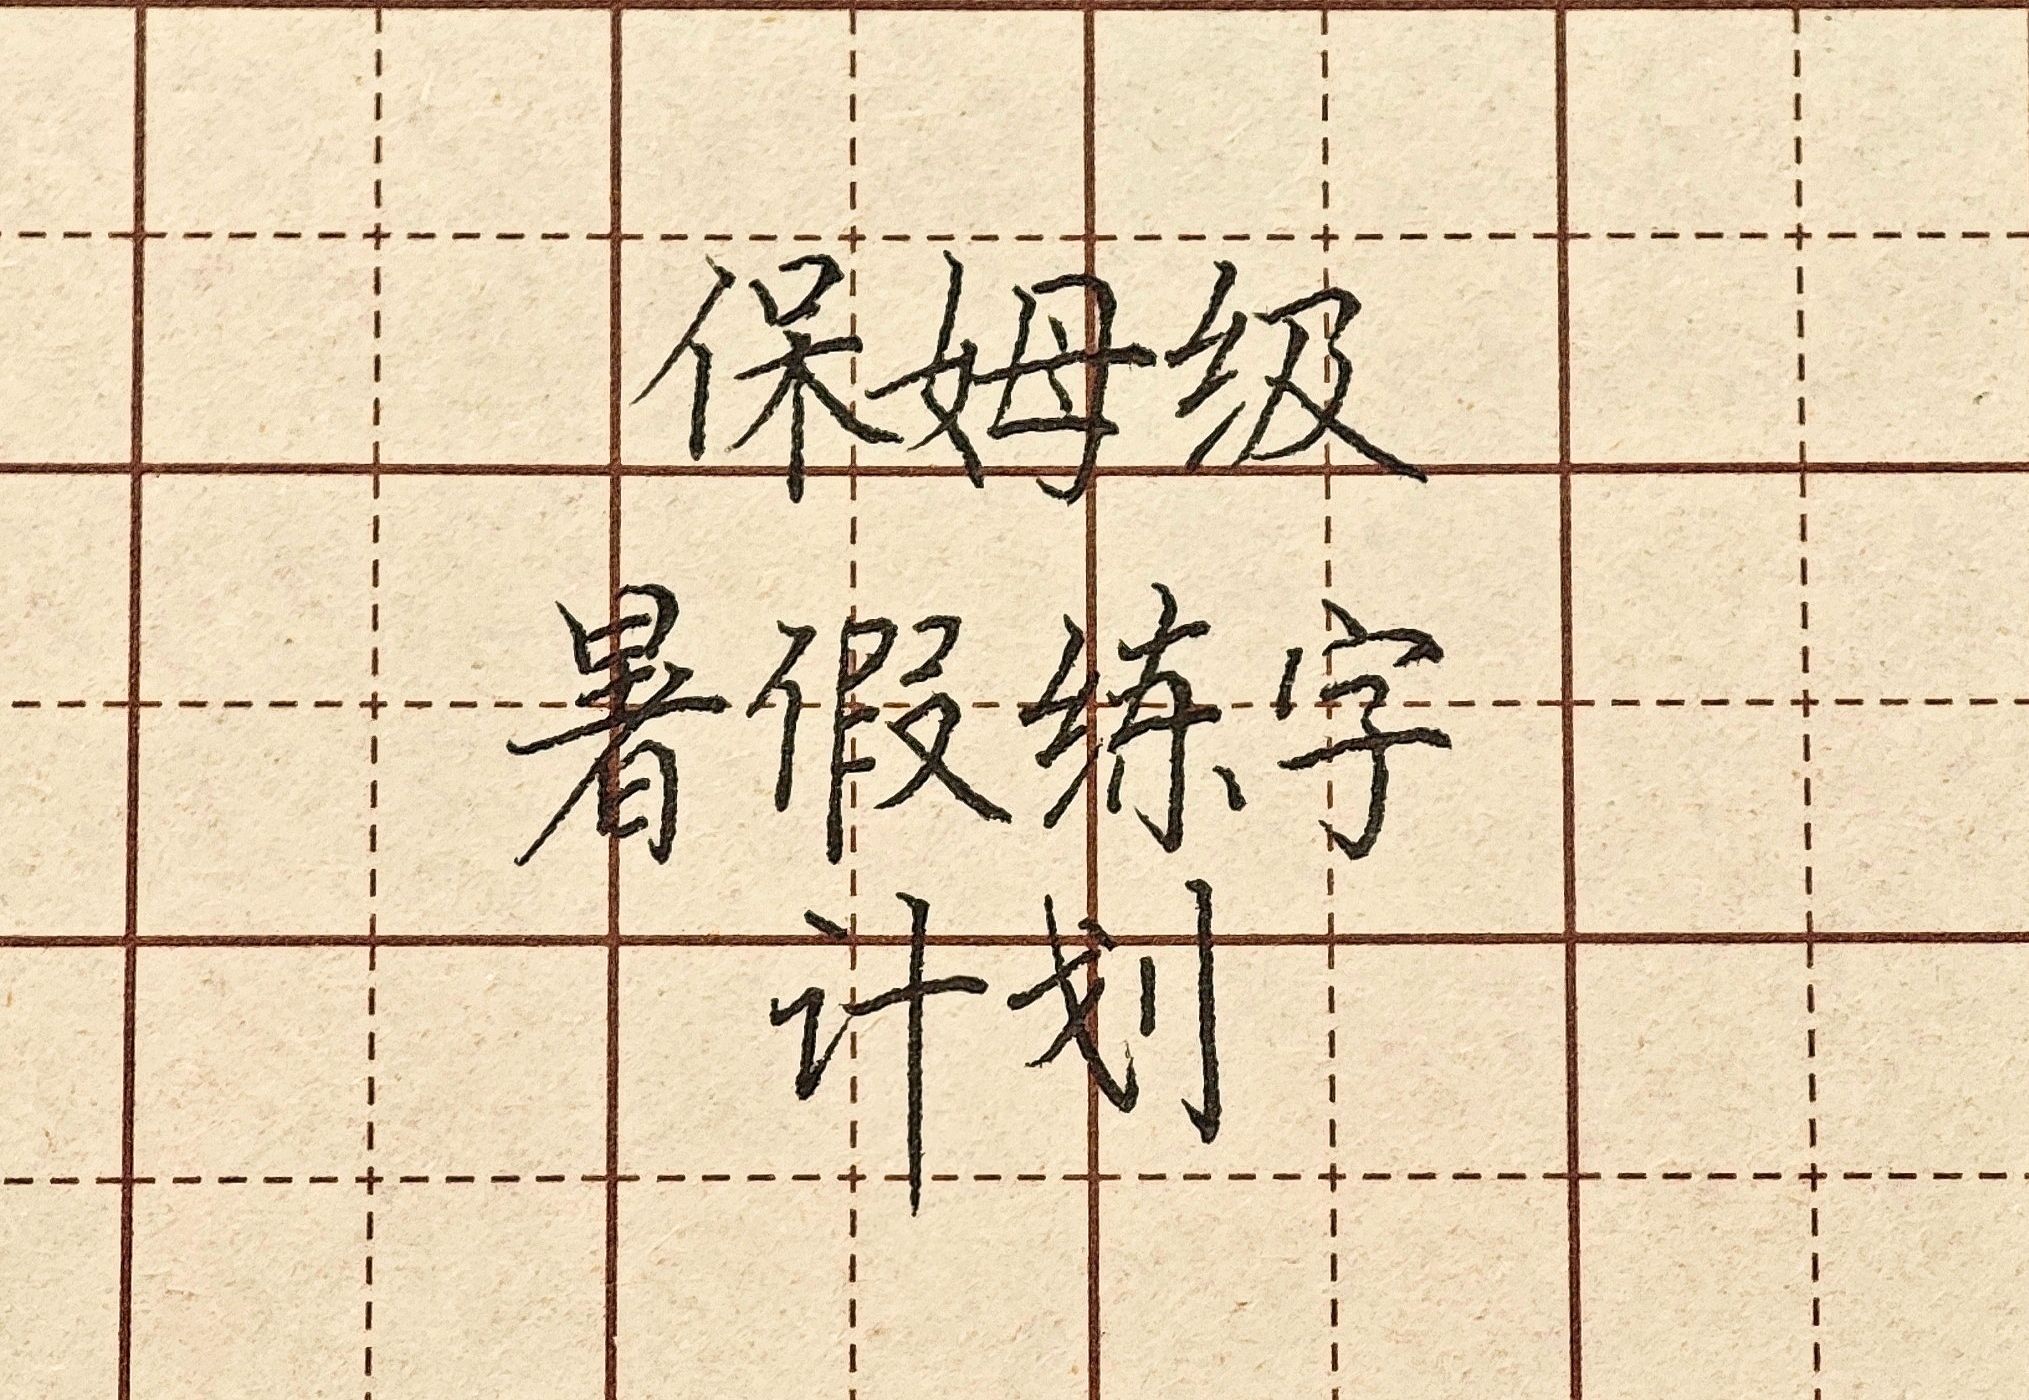 保姆级
暑假练字
计划